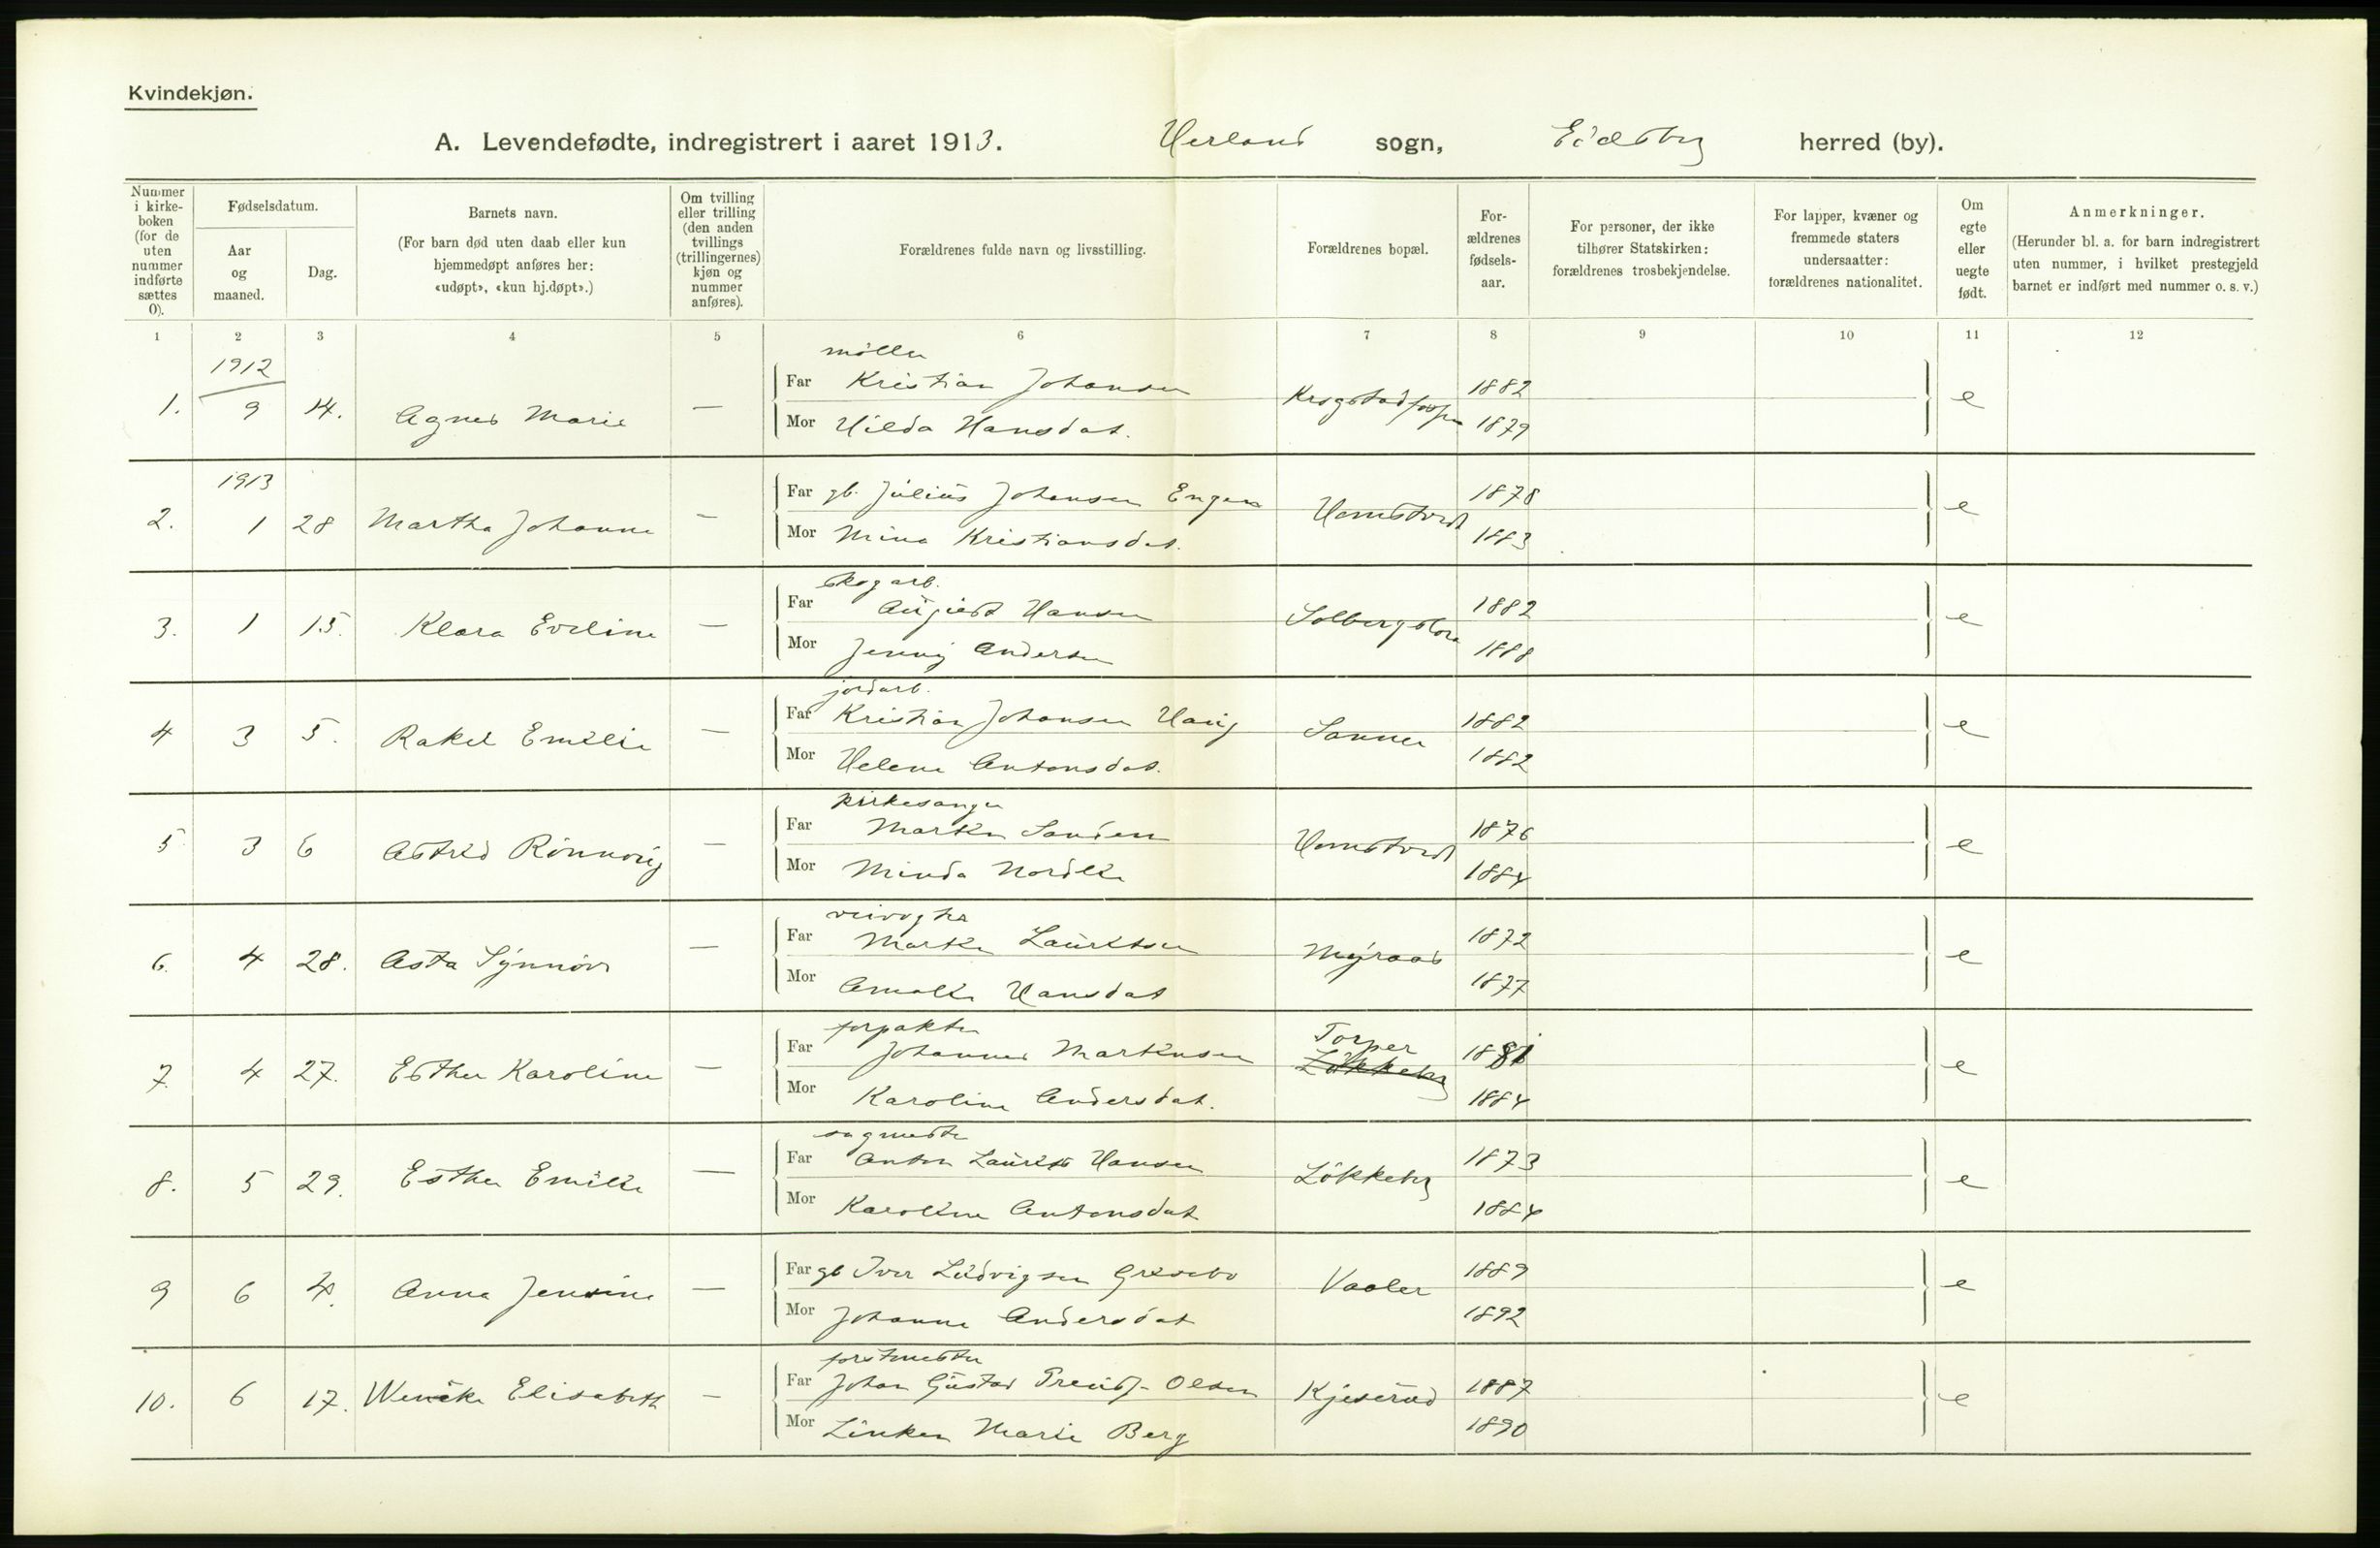 Kvindekjøn.
A. Levendefødte, indregistrert i aaret 1913. Herland sogn, Eidsbg herred (by).
Nummer i kirke-boken (for de uten nummer indførte sættes 0).
Fødselsdatum.
Aar og maaned.
Dag.
Barnets navn.
(For barn død uten daab eller kun hjemmedøpt anføres her: «udøpt», «kun hj.døpt».)
Om tvilling eller trilling (den anden tvillings (trillingernes) kjøn og nummer anføres).
Forældrenes fulde navn og livsstilling.
Forældrenes bopæl.
For-ældrenes fødsels-aar.
For personer, der ikke tilhører Statskirken: forældrenes trosbekjendelse.
For lapper, kvæner og fremmede staters undersaatter: forældrenes nationalitet.
Om egte eller uegte født.
Anmerkninger.
(Herunder bl. a. for barn indregistrert uten nummer, i hvilket prestegjeld barnet er indført med nummer o. s. v.)
1 2 3 4 5 6 7 8 9 10 11 12
1912 møller
1. 9 14. Agnes Marie — Far Kristian Johansen Krogstadfossen 1882 e
Mor Hilda Hansdat. 1879
1913
2. 1 28 Martha Johanne — Far gb. Julius Johansen Engen 1878 e
Mor Mina Kristiansdat. 1883
skogarb.
3. 1 15. Klara Eveline — Far August Hansen 1882 e
Mor Jenny Andersen 1888
jordarb.
4 3 5. Rakel Emilie — Far Kristian Johansen Haug Sanner 1882 e
Mor Helene Antonsdat. 1882
kirkesanger
5 3 6 Astrid Rönnoug — Far Martin Sanden 1876 e
Mor Minda Nordlie 1884
veivogter
6. 4 28. Asta Synnöve — Far Martin Lauritsen Myraas 1872 e
Mor Amalie Hansdat 1877
forpakter Torper
7. 4 27. Esther Karoline — Far Johannes Martinsen Lökkebg 1881 e
Mor Karoline Andersdat. 1884
sagmester
8. 5 29. Esther Emilie — Far Anton Laurits Hansen Lökkebg 1873 e
Mor Karoline Antonsdat 1884
9 6 4. Anna Jensine — Far gb Iver Ludvigsen Gresebo Vaaler 1889 e
Mor Johanne Andersdat 1892
forstmester
10. 6 17. Wencke Elisabeth — Far Johan Gustav Olsen Kjeserud 1887 e
Mor Linken Marie Berg 1890